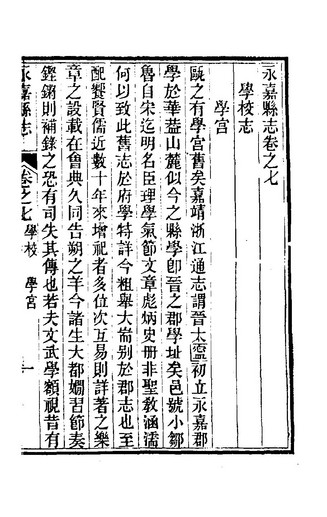 永嘉縣志卷之七
學校志
學宮
甌之有學宮舊矣嘉靖浙江通志謂晉太寧初立永嘉郡
學於華葢山麓似今之縣學卽晉之郡學址矣邑號小鄒
魯自宋迄明名臣理學氣節文章彪炳史册非聖敎涵濡
何以致此舊志於府學特詳今粗舉大耑别於郡志也至
配饗賢儒近數十年來增祀者多位次互易則詳著之樂
章之設載在會典久同告朔之羊今諸生大都嫺習節奏
鏗鏘則補錄之恐有司失其傳也若夫文武學額視昔有
永嘉縣志
卷之七
學校
學宮
一